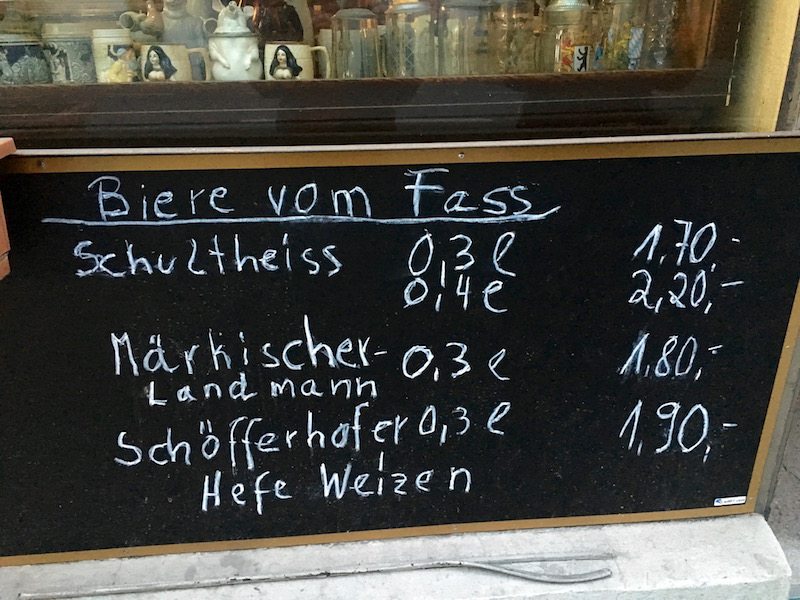 Biere vom Fass
Schultheiss 0,3 l 1,70,-
0,4 l 2,20,-
Märkischer- 0,3 l 1,80,-
Landmann
Schöfferhofer 0,3 l 1,90,-
Hefe Weizen